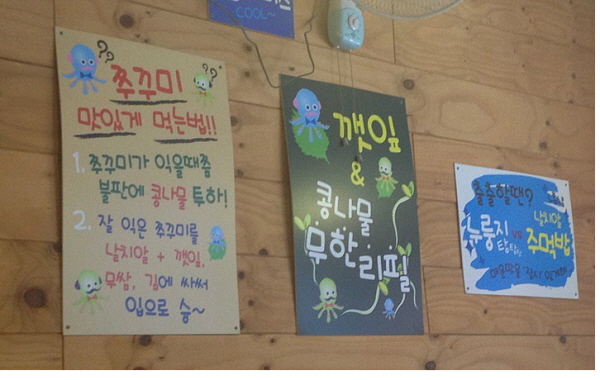 COOL~
??
??
쭈꾸미
맛있게 먹는법!!
1. 쭈꾸미가 익을때쯤
불판에 콩나물 투하!
2. 잘 익은 쭈꾸미를
날치알 + 깻잎,
무쌈, 김에 싸써
입으로 슝~
깻잎
&
콩나물
무한리필
출출할땐?
누룽지 vs 날치알
주먹밥